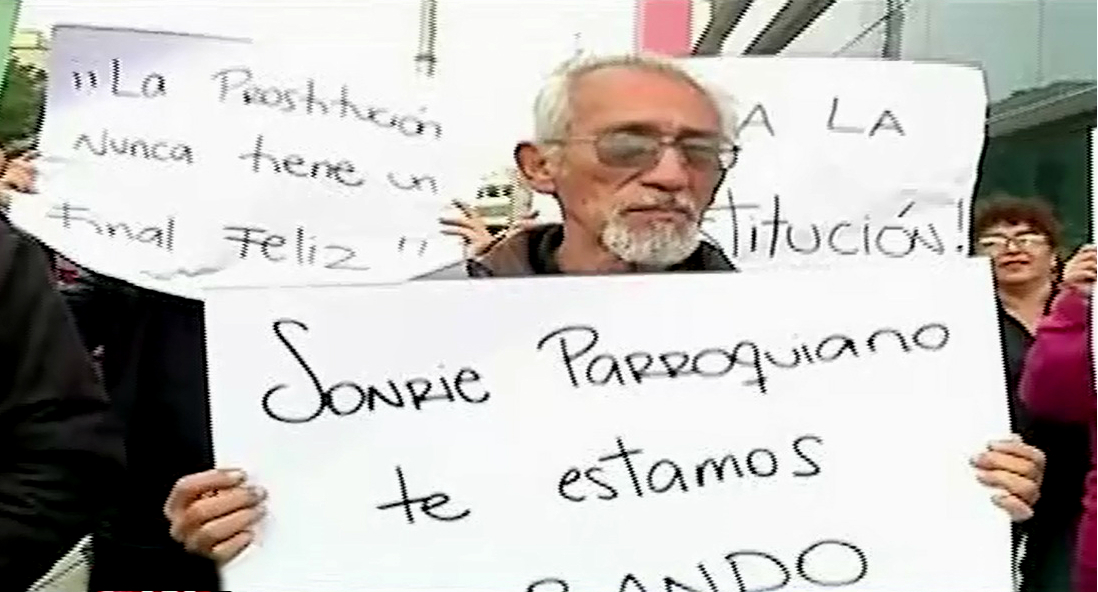 "La Prostitución
Nunca tiene un
Final Feliz"
A LA
TITUCIÓN!
Sonrie Parroquiano
te estamos
ANDO